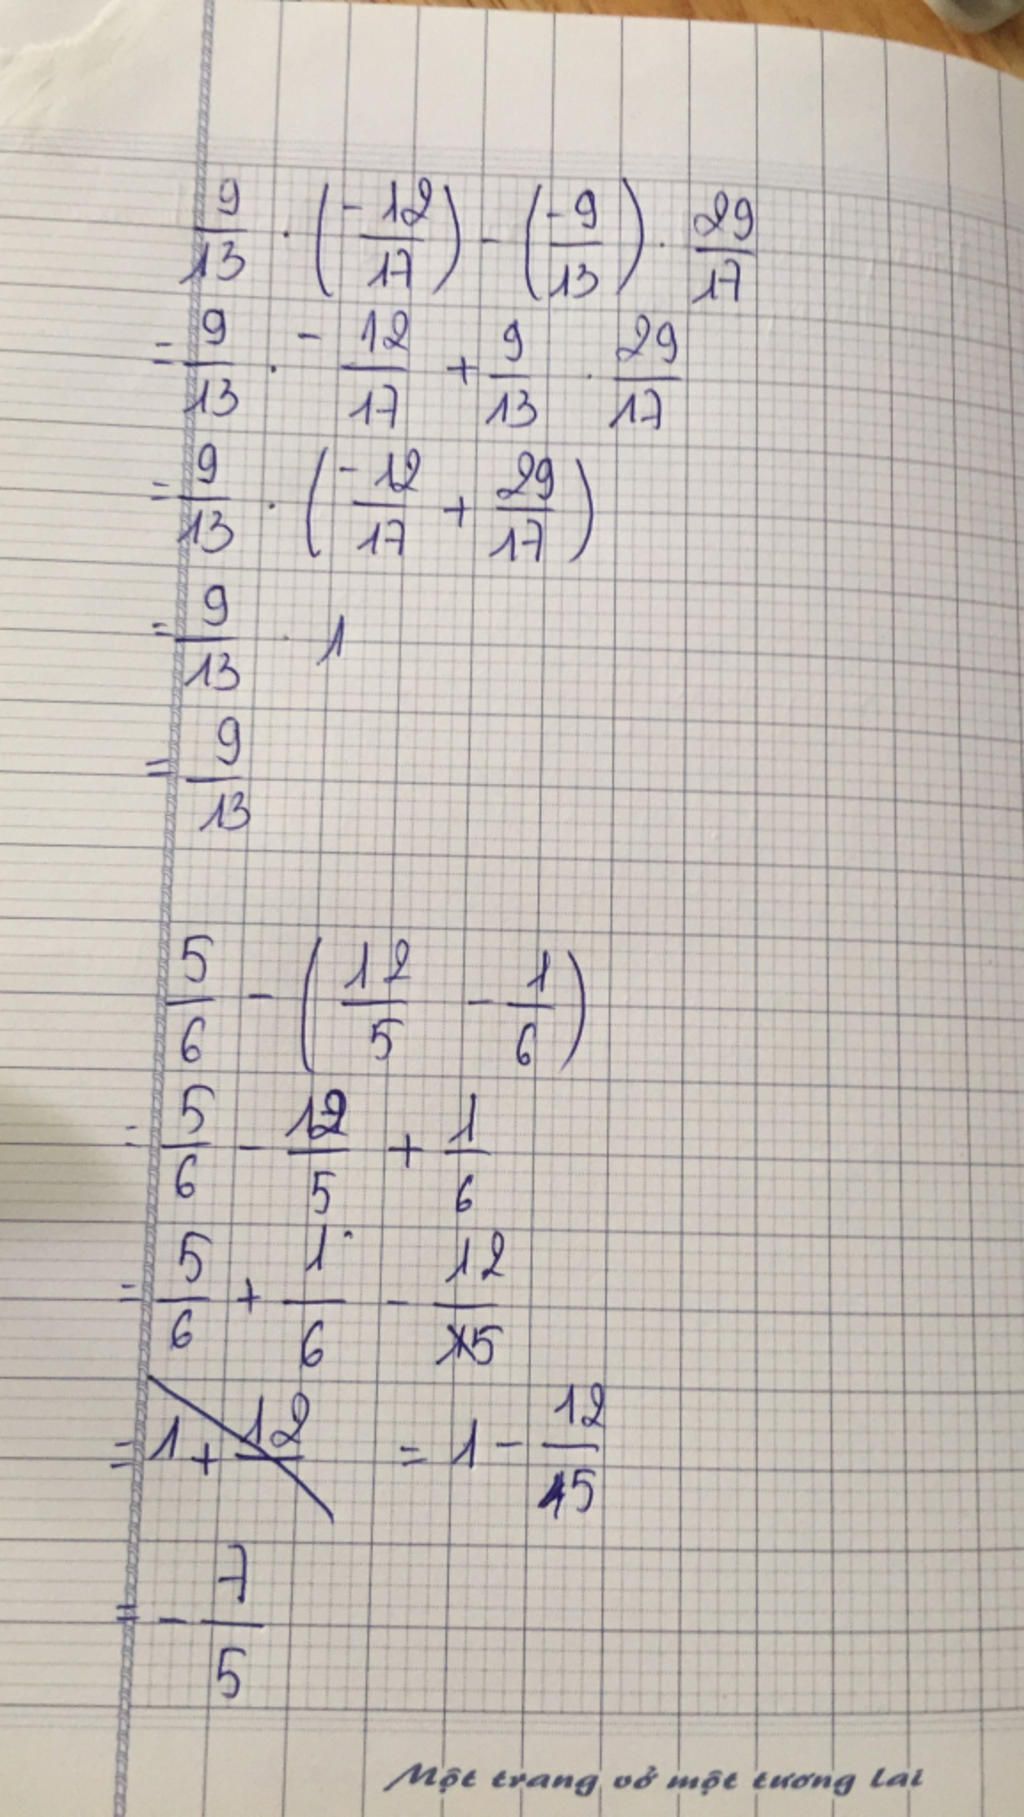 9/13 · (-12/17) - (-9/13) · 29/17
= 9/13 · - 12/17 + 9/13 · 29/17
= 9/13 · (-12/17 + 29/17)
= 9/13 · 1
= 9/13
5/6 - (12/5 - 1/6)
= 5/6 - 12/5 + 1/6
= 5/6 + 1/6 - 12/5
= 1 + 12 = 1 - 12/5
= - 7/5
Một trang vở một tương lai